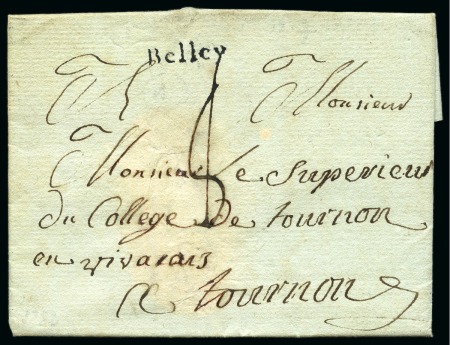 Belley
A Monsieur
Monsieur le Superieur
du College de tournon
en vivarais
a tournon